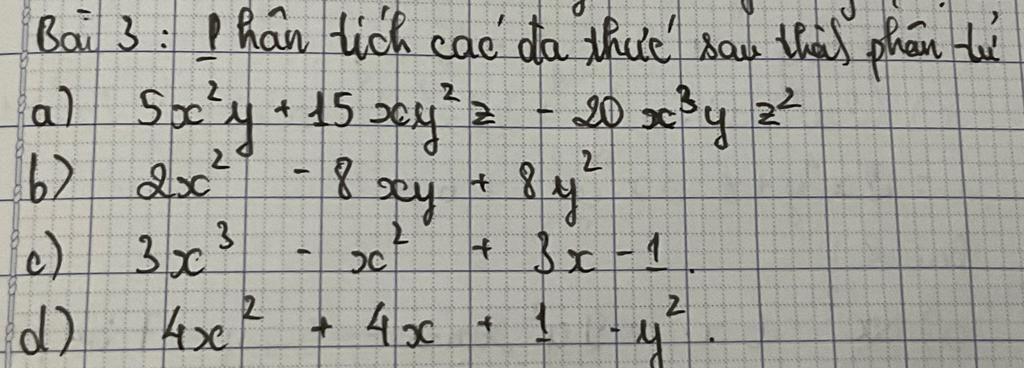 Bài 3: Phân tích các đa thức sau thành phân tử
a) 5x²y + 15xy²z - 20x³yz²
b) 2x² - 8xy + 8y²
c) 3x³ - x² + 3x - 1.
d) 4x² + 4x + 1 - y².